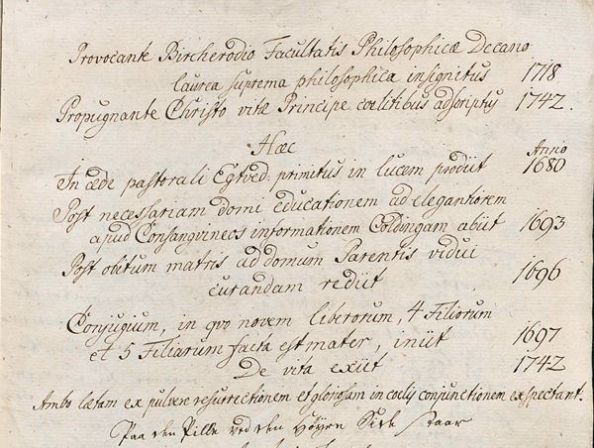 Provocante Bircherodio Facultatis Philosophicæ Decano
laurea suprema philosophica insignitus 1718
Propugnante Christo vitæ Principe coelitibus adscriptus 1742.
Hæc Anno
In æde pastorali Egtved: primitus in lucem prodiit 1680
Post necessariam domi educationem ad elegantiorem
apud Consangvineos informationem Coldingam abiit 1693
Post obitum matris ad domum Parentis vidui
curandam rediit 1696
Conjugium, in qvo novem liberorum, 4 Filiorum
et 5 Filiarum facta est mater, iniit 1697
De vita exiit 1742
Ambo lætam ex pulvere resurrectionem et gloriosam in coelis conjunctionem exspectant.
Paa den Pille ved den Høyre Side staar